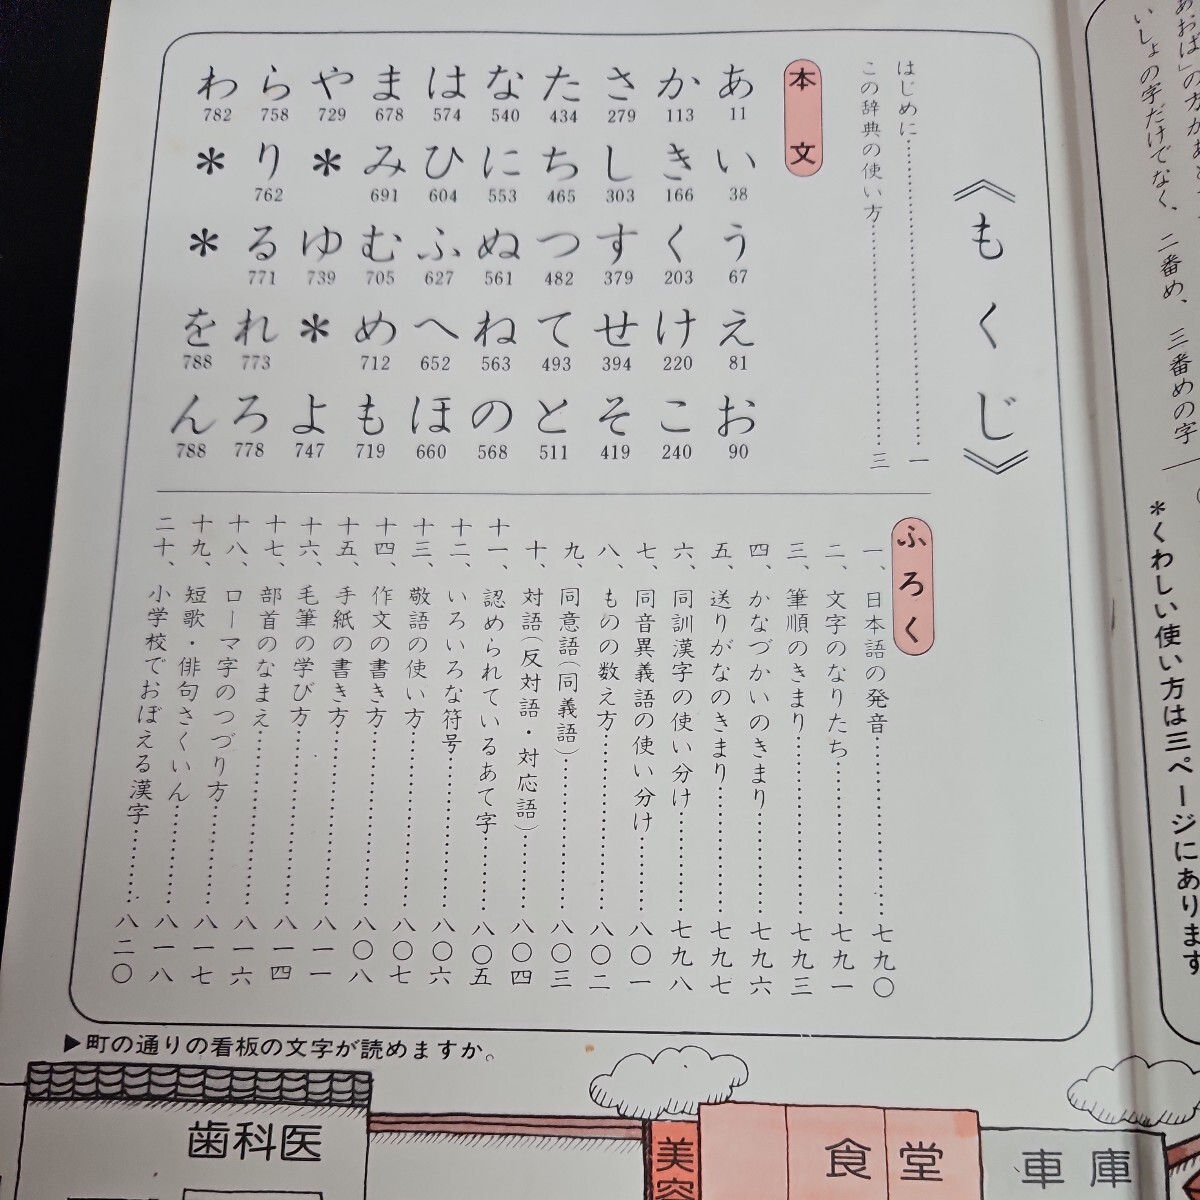 あおば」の方があ
いしょの字だけでなく、二番め、三番めの字
＊くわしい使い方は三ページにあります
《もくじ》
はじめに……………………一
この辞典の使い方……………………三
本文
あ 11 い 38 う 67 え 81 お 90
か 113 き 166 く 203 け 220 こ 240
さ 279 し 303 す 379 せ 394 そ 419
た 434 ち 465 つ 482 て 493 と 511
な 540 に 553 ぬ 561 ね 563 の 568
は 574 ひ 604 ふ 627 へ 652 ほ 660
ま 678 み 691 む 705 め 712 も 719
や 729 ＊ ゆ 739 ＊ よ 747
ら 758 り 762 る 771 れ 773 ろ 778
わ 782 ＊ ＊ を 788 ん 788
ふろく
一、日本語の発音……………七九〇
二、文字のなりたち……………七九一
三、筆順のきまり……………七九三
四、かなづかいのきまり……………七九六
五、送りがなのきまり……………七九七
六、同訓漢字の使い分け……………七九八
七、同音異義語の使い分け……………八〇一
八、ものの数え方……………八〇二
九、同意語(同義語)……………八〇三
十、対語(反対語・対応語)……………八〇四
十一、認められているあて字……………八〇五
十二、いろいろな符号……………八〇六
十三、敬語の使い方……………八〇七
十四、作文の書き方……………八〇八
十五、手紙の書き方……………八一一
十六、毛筆の学び方……………八一四
十七、部首のなまえ……………八一六
十八、ローマ字のつづり方……………八一七
十九、短歌・俳句さくいん……………八一八
二十、小学校でおぼえる漢字……………八二〇
▶町の通りの看板の文字が読めますか。
歯科医
美容
食堂
車庫